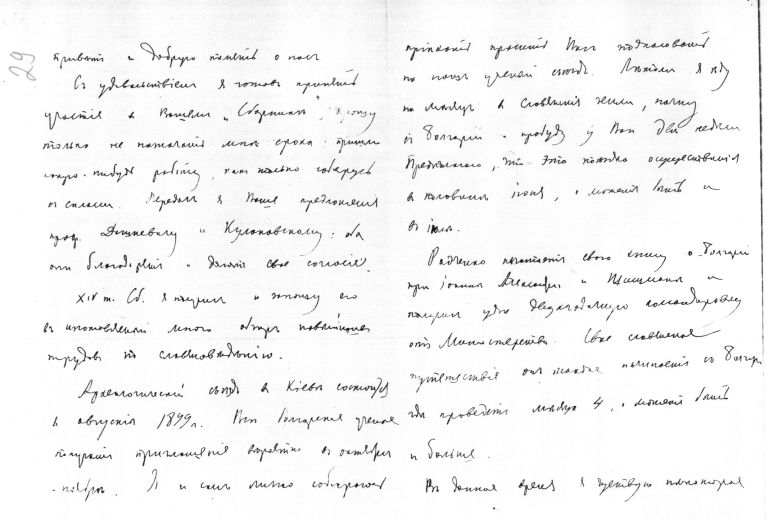 29
привѣтъ и добрую память о насъ
Съ удовольствіемъ я готовъ принять
участіе въ Вашемъ „Сборникѣ“, прошу
только не назначать мнѣ срока: пришлю
какую-нибудь работу, какъ только соберусь
съ силами. Передалъ я Ваше предложеніе
проф. Дашкевичу и Кулаковскому: оба
они благодарятъ и даютъ свое согласіе.
XIV т. Сб. я получилъ и
въ много обзоръ новѣйшихъ
трудовъ по славяновѣдѣнію.
Археологическій съѣздъ въ Кіевѣ состоится
въ августѣ 1899 г. Всѣ болгарскіе ученые
получатъ приглашенія вѣроятно въ октябрѣ
-ноябрѣ. Я и самъ лично собираюсь
пріѣхать просить Васъ пожаловать
на нашъ ученый съѣздъ. Лѣтомъ я ѣду
въ славянскія земли, начну
съ Болгаріи и пробуду у Васъ двѣ недѣли
Предполагаю, что эта поѣздка осуществится
въ половинѣ іюня, а можетъ быть и
въ іюлѣ.
Радченко печатаетъ свою книгу о Болгаріи
при Іоаннѣ Александрѣ и Шишманѣ и
получилъ уже двухгодичную командировку
отъ Министерства. Свое славянское
путешествіе онъ также начинаетъ съ Болгаріи
гдѣ проведетъ мѣсяца 4, а можетъ быть
и больше.
Въ данное время я чувствую нѣкоторое